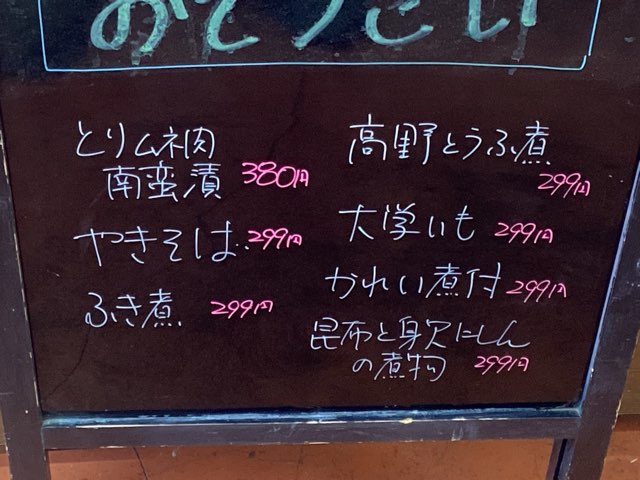 おそうざい
とりムネ肉
南蛮漬 380円
やきそば 299円
ふき煮 299円
高野とうふ煮
299円
大学いも 299円
かれい煮付 299円
昆布と身欠にしん
の煮物 299円